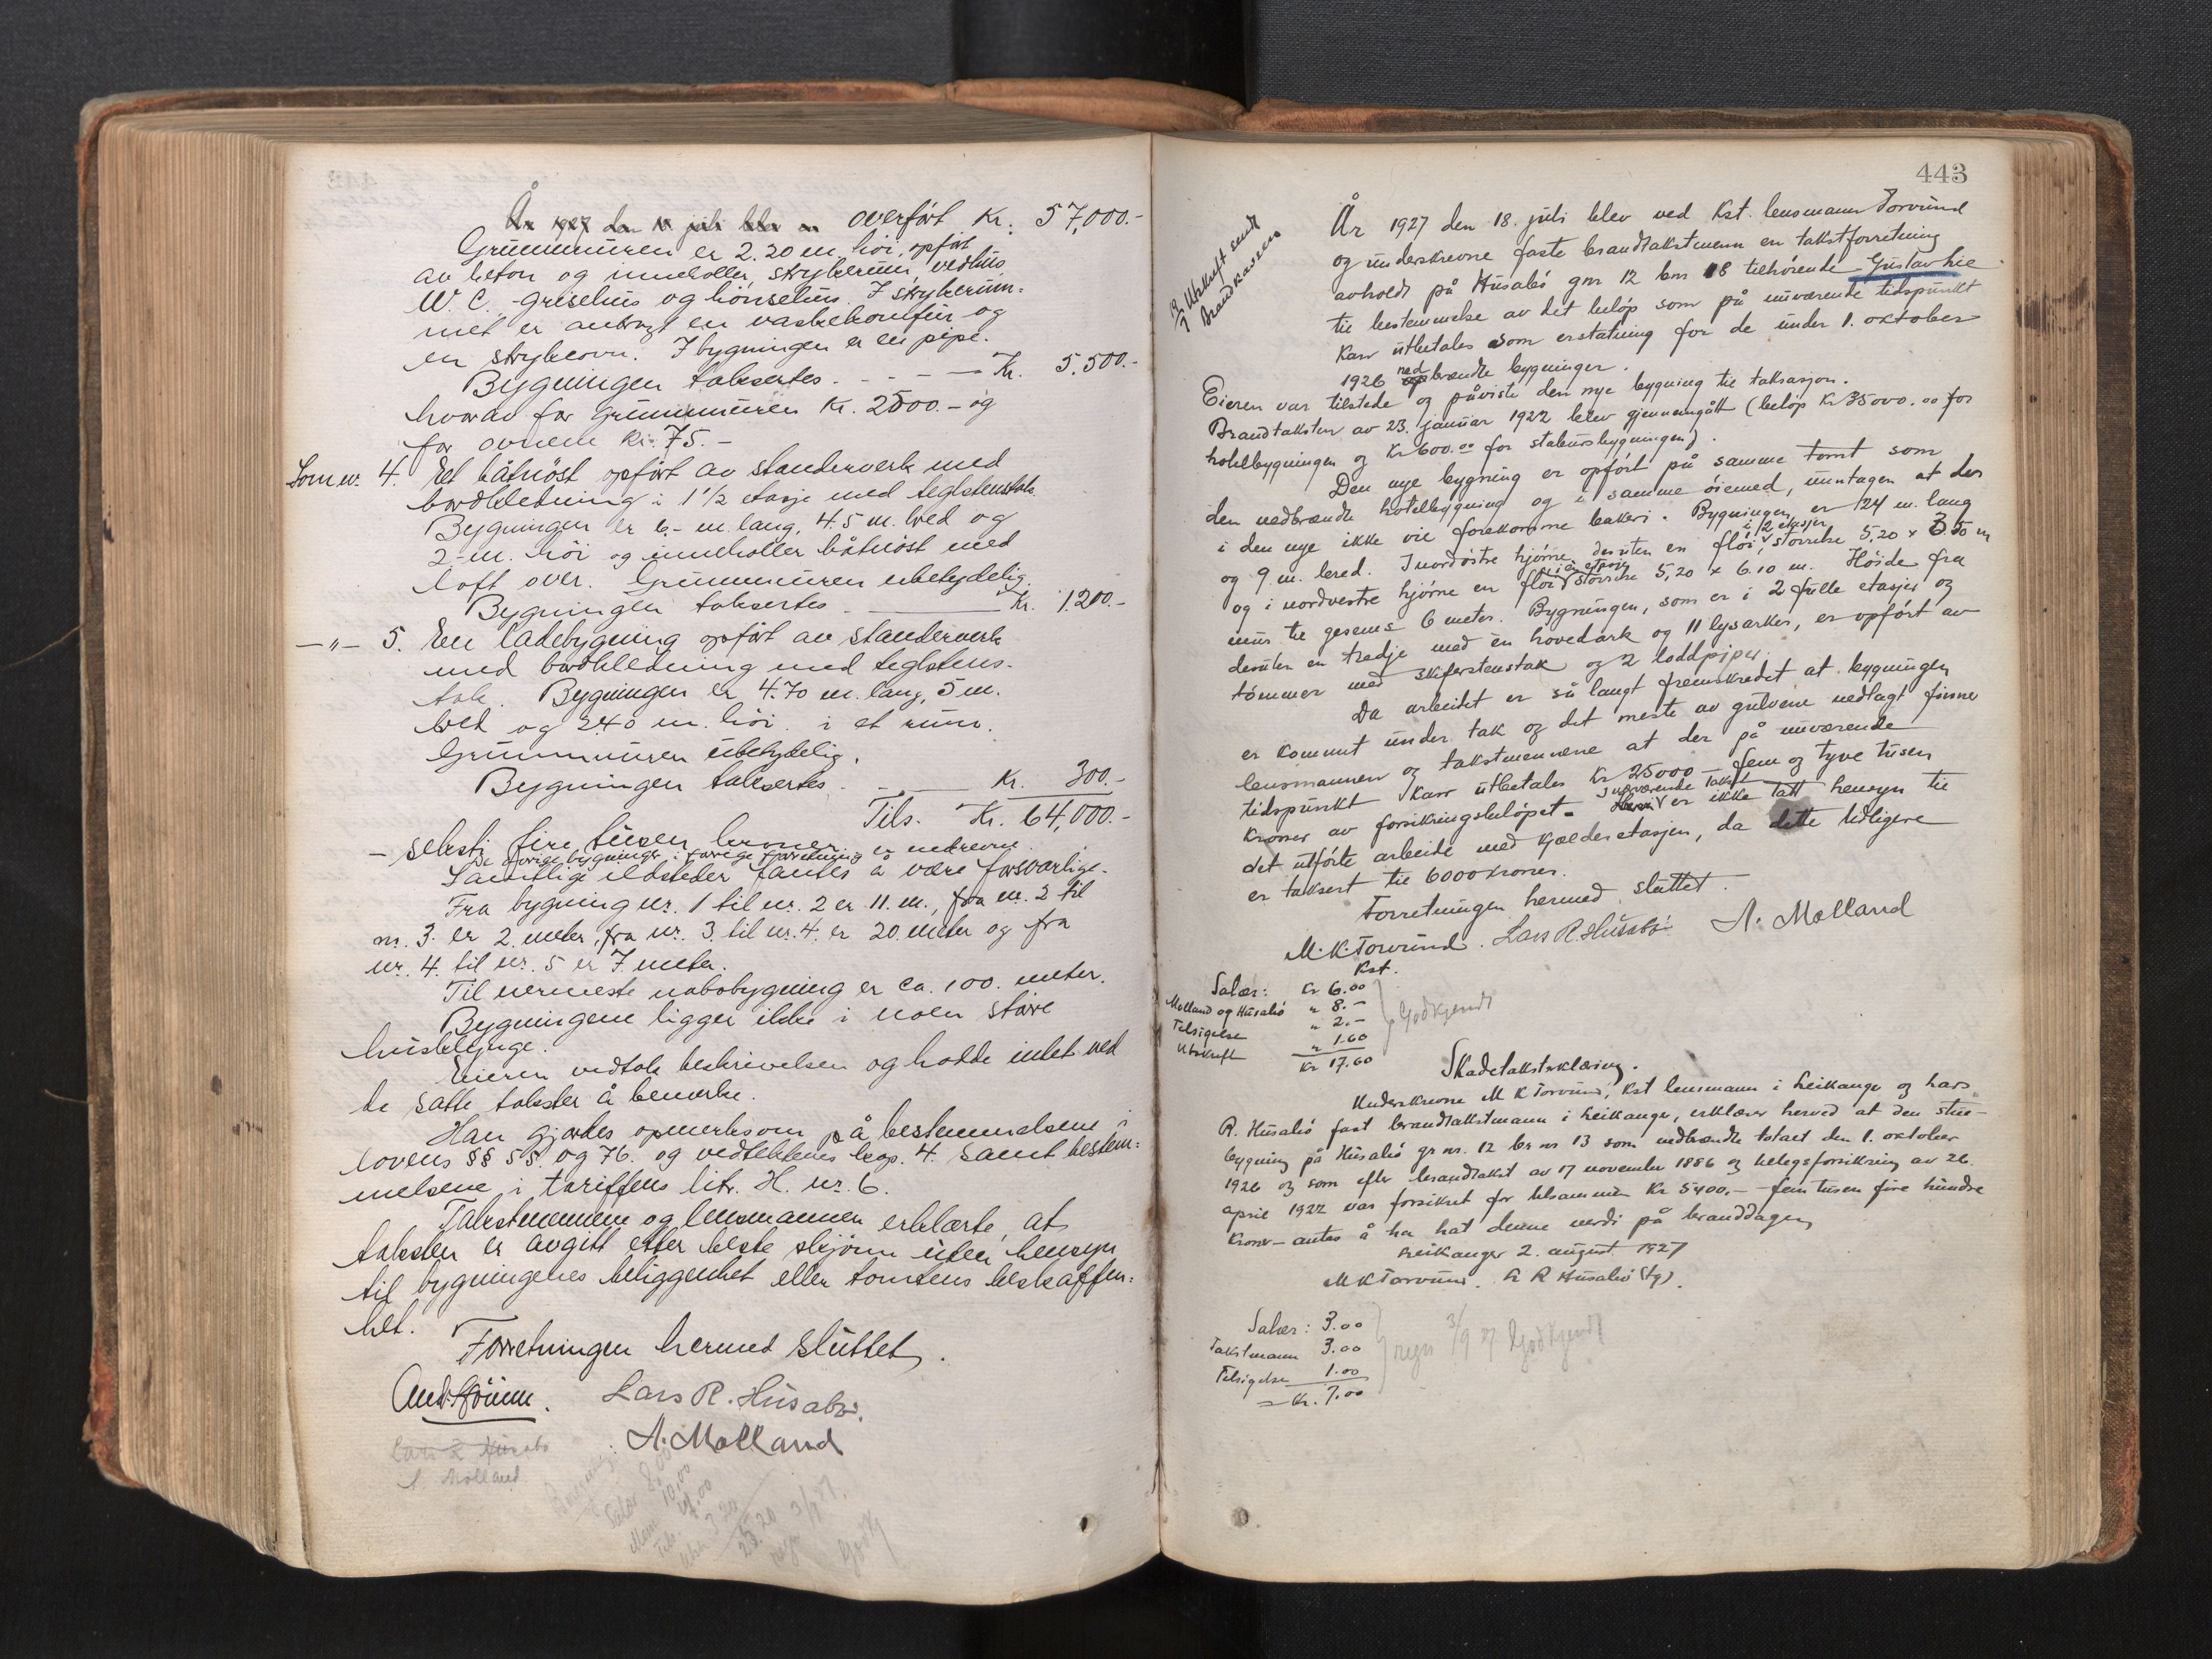 År 1927 den 11 juli blev en overført Kr. 57,000.-
Grunnmuren er 2.20 m. høi, opført
av beton og inneholler strykerum, vedhus
W.C., grisehus og hönsehus. I strykerum-
met er anbragt en vaskekomfur og
en strykeovn. I bygningen er en pipe.
Bygningen takseres. - - - - Kr. 5.500.-
hvorav for grunnmuren Kr. 2500.- og
for ovnene kr. 75.-
Som nr. 4. Et båtnöst opført av standerverk med
bordkledning i 1 1/2 etasje med teglstenstak.
Bygningen er 6.- m. lang, 4.5 m. bred og
2.- m. höi og inneholler båtnöst med
loft over. Grunnmuren ubetydelig.
Bygningen takseres - Kr. 1.200.-
-"- 5. En ladebygning opført av standerverk
med bordkledning med teglstens-
tak. Bygningen er 4.70 m. lang, 5 m.
bred og 2.40 m. höi i et rum.
Grunnmuren ubetydelig.
Bygningen takseres - Kr. 300.-
Tils. Kr. 64,000.-
- seksti fire tusen kroner
De övrige bygninger i forrige forretning er nedrevne.
Samtlige ildsteder fantes å være forsvarlige.
Fra bygning nr. 1 til nr. 2 er 11. m., fra nr. 2 til
nr. 3. er 2. meter, fra nr. 3. til nr. 4. er 20. meter og fra
nr. 4. til nr. 5 er 7 meter.
Til nermeste nabobygning er ca. 100. meter.
Bygningene ligger ikke i noen större
husklynge.
Eieren vedtok beskrivelsen og hadde intet ved
de satte takster å bemerke.
Han gjordes opmerksom på bestemmelsene i
lovens §§ 55. og 76. og vedtektenes kap. 4. samt bestem-
melsene i tariffens litr. H. nr. 6.
Takstmennene og lensmannen erklærte, at
taksten er avgitt etter beste skjönn uten hensyn
til bygningenes beliggenhet eller tomtens beskaffen-
het.
Forretningen hermed sluttet.
Lars R. Husabö.
A. Molland
Lars R Husabö
A. Molland
Salær 8,00
10,00
3.20
25.20
443
Utskrift sendt
Brandkassen
År 1927 den 18. juli blev ved Kst. lensmann Torvund
og underskrevne faste brandtakstmenn en takstforretning
avholdt på Husabö gnr 12 bnr 18 tilhørende Gustav Lie
til bestemmelse av det belöp som på nuværende tidspunkt
kan utbetales som erstatning for de under 1. oktober
1926 nedbrændte bygninger.
Eieren var tilstede og påviste den nye bygning til taksasjon.
Brandtaksten av 23. januar 1922 blev gjennemgått (belöp Kr 35000.00 for
hotelbygningen og Kr 600.00 for stabursbygningen).
Den nye bygning er opfört på samme tomt som
den nedbrændte hotelbygning og i samme öiemed, unntagen at der
i den nye ikke vil forekomme bakeri. Bygningen er 24 m. lang
og 9 m. bred. I nordöstre hjörne desuten en flöi i 2 etasjer, störrelse 5,20 x 3.50 m
og i nordvestre hjörne en flöi i en etasje störrelse 5,20 x 6.10 m. Höide fra
mur til gesems 6 meter. Bygningen, som er i 2 fulle etasjer og
desuten en tredje med en hovedark og 11 lysarker, er opfört av
tömmer med skiferstenstak og 2 loddpiper.
Da arbeidet er så langt fremskredet at bygningen
er kommet under tak og det meste av gulvene nedlagt finner
lensmannen og takstmennene at der på nuværende
tidspunkt kan utbetales Kr 25000 - fem og tyve tusen
kroner av forsikringsbelöpet. - I nuværende takst er ikke tatt hensyn til
det utförte arbeide med kjælderetasjen, da dette tidligere
er taksert til 6000 kroner.
Forretningen hermed sluttet.
M. K. Torvund. Lars R. Husabö. A. Molland
Kst.
Salær: Kr 6.00
Molland og Husabö " 8.-
Tilsigelse " 2.-
Utskrift " 1.60
Kr 17.60
Godkjendt
Skadetakstærklæring.
Underskrevne M K Torvund, Kst lensmann i Leikanger og Lars
R. Husabö fast brandtakstmann i Leikanger, erklærer herved at den stue-
bygning på Husabö gr nr. 12 br nr 13 som nedbrændte totalt den 1. oktober
1926 og som efter brandtakst av 17 november 1886 og tilleggsforsikring av 26.
april 1922 var forsikret for tilsammen Kr 5400.- fem tusen fire hundre
kroner - antas å ha hat denne verdi på branddagen.
Leikanger 2. august 1927
M K Torvund. L R Husabö (sg).
Salær: 3.00
Takstmann 3.00
Tilsigelse 1.00
= Kr. 7.00
regn 3/9 27 Godkjendt